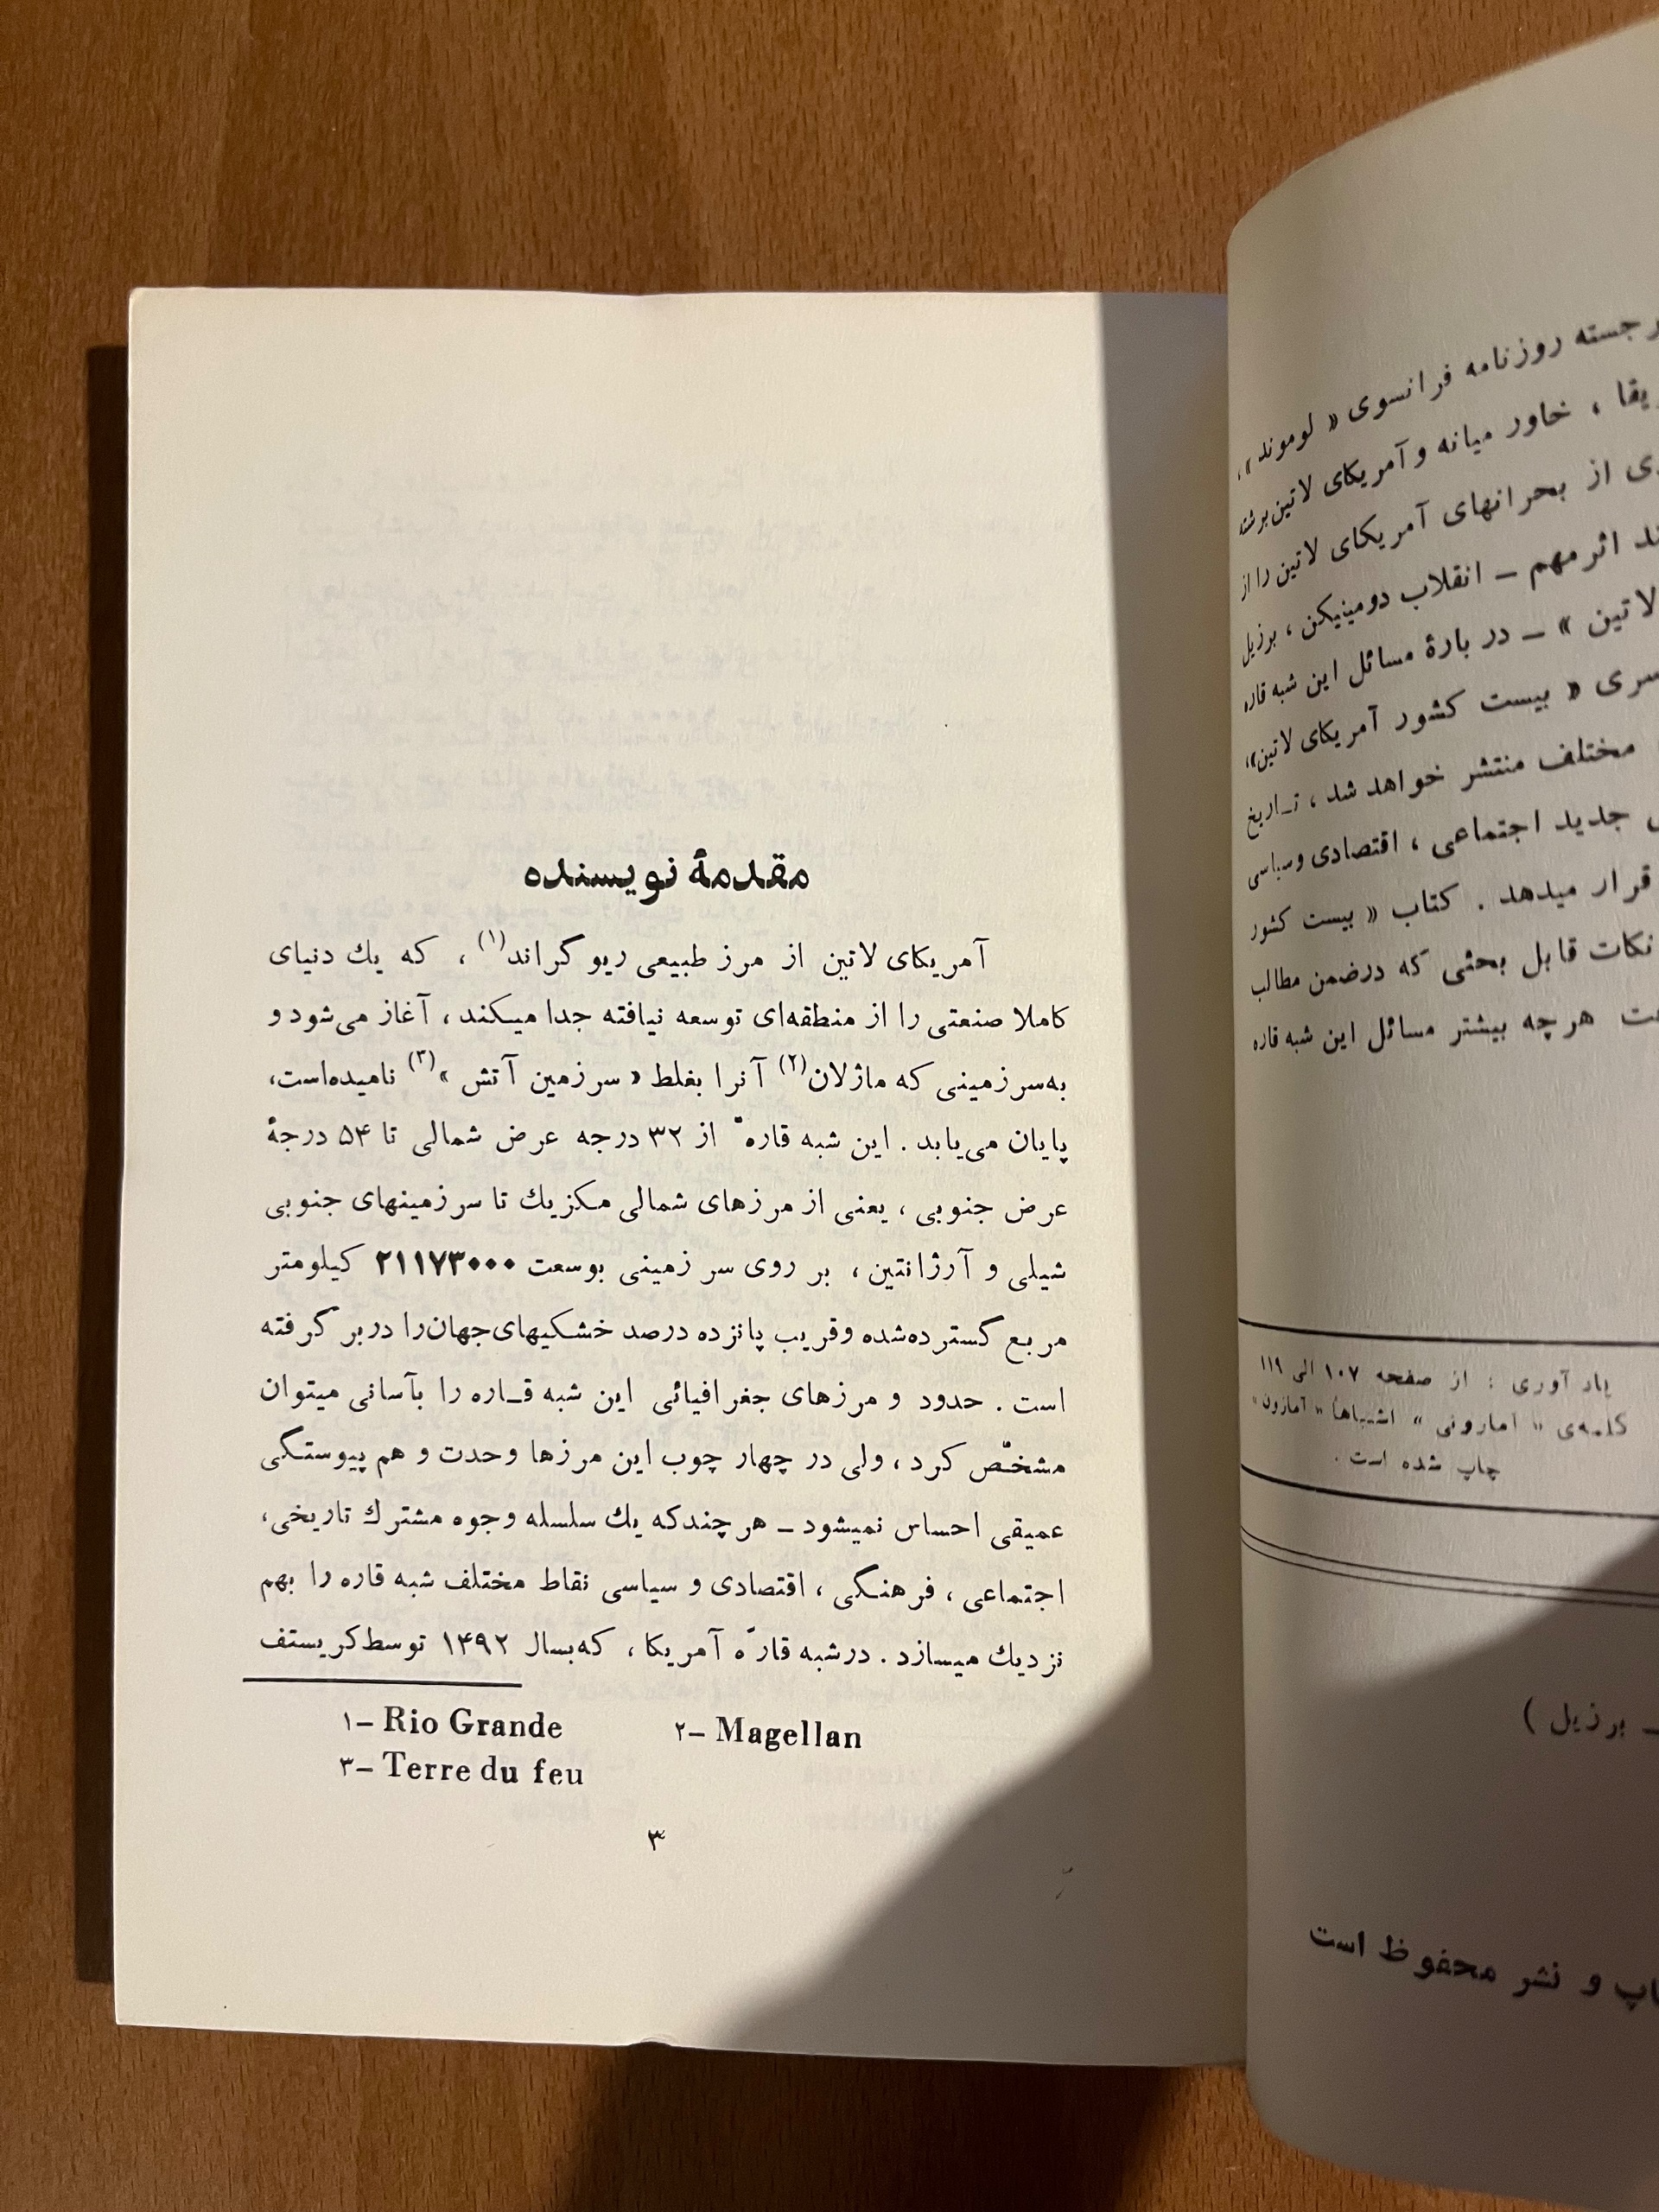 رجسته روزنامه فرانسوی « لوموند »،
ریقا ، خاور میانه و آمریکای لاتین برشته
ی از بحرانهای آمریکای لاتین را از
ند اثر مهم ــ انقلاب دومینیکن ، برزیل
لاتین » ــ در بارهٔ مسائل این شبه قاره
سری « بیست کشور آمریکای لاتین»،
مختلف منتشر خواهد شد ، تـاریخ
جدید اجتماعی ، اقتصادی وسیاسی
قرار میدهد . کتاب « بیست کشور
نکات قابل بحثی که درضمن مطالب
هرچه بیشتر مسائل این شبه قاره
یاد آوری : از صفحه ۱۰۷ الی ۱۱۹
کلمه‌ی « آمازونی » اشتباهاً « آمازون»
چاپ شده است .
ــ برزیل )
اپ و نشر محفوظ است
مقدمهٔ نویسنده
آمریکای لاتین از مرز طبیعی ریو گراند(۱) ، که یك دنیای
کاملا صنعتی را از منطقه‌ای توسعه نیافته جدا میـکند ، آغاز می‌شود و
به‌سرزمینی که ماژلان(۲) آنرا بغلط « سرزمین آتش »(۳) نامیده‌است،
پایان می‌یابد . این شبه قارهّ از ۳۲ درجه عرض شمالی تا ۵۴ درجهٔ
عرض جنوبی ، یعنی از مرزهای شمالی مکزیك تا سرزمینهای جنوبی
شیلی و آرژانتین ، بر روی سر زمینی بوسعت ۲۱۱۷۳۰۰۰ کیلومتر
مربع گسترده‌شده وقریب پانزده درصد خشکیهای‌جهان‌را دربر گرفته
است . حدود و مرزهای جغرافیائی این شبه قـاره را بآسانی میتوان
مشخّص کرد ، ولی در چهار چوب این مرزها وحدت و هم پیوستگی
عمیقی احساس نمیشود ــ هرچندکه یك سلسله وجوه مشترك تاریخی،
اجتماعی ، فرهنگی ، اقتصادی و سیاسی نقاط مختلف شبه قاره را بهم
نزدیك میسازد . درشبه قارّه آمریکا ، که‌بسال ۱۴۹۲ توسط‌کریستف
۱– Rio Grande ۲– Magellan
۳– Terre du feu
۳